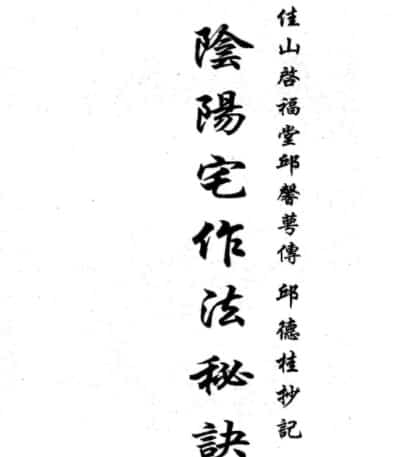 佳山啓福堂邱馨蕚傳 邱德桂抄記
陰陽宅作法秘訣